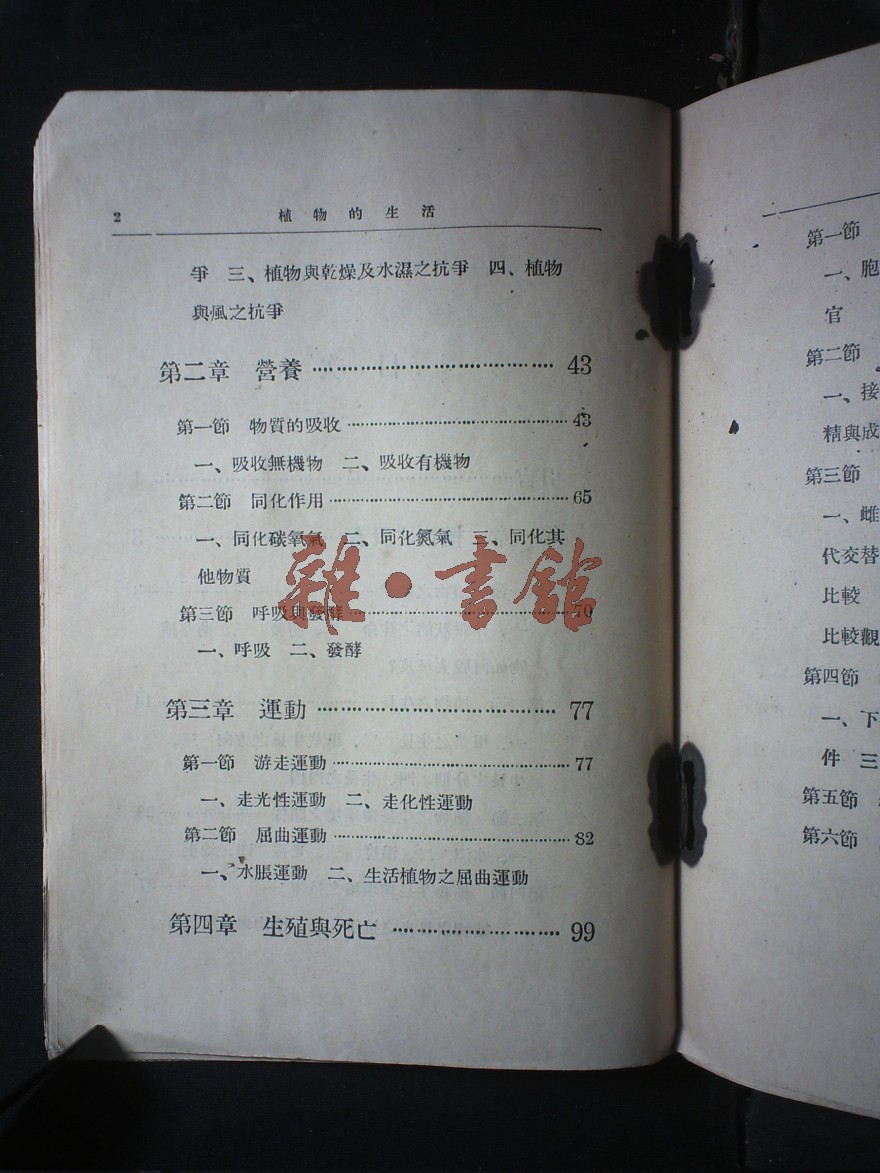 2 植物的生活
爭 三、植物與乾燥及水濕之抗爭 四、植物
與風之抗爭
第二章 營養 43
第一節 物質的吸收 43
一、吸收無機物 二、吸收有機物
第二節 同化作用 65
一、同化碳氧氣 二、同化氮氣 三、同化其
他物質
第三節 呼吸與發酵 70
一、呼吸 二、發酵
第三章 運動 77
第一節 游走運動 77
一、走光性運動 二、走化性運動
第二節 屈曲運動 82
一、水脹運動 二、生活植物之屈曲運動
第四章 生殖與死亡 99
雜·書館
第一節
一、胞
官
第二節
一、接
精與成
第三節
一、雌
代交替
比較
比較觀
第四節
一、下
件 三
第五節
第六節